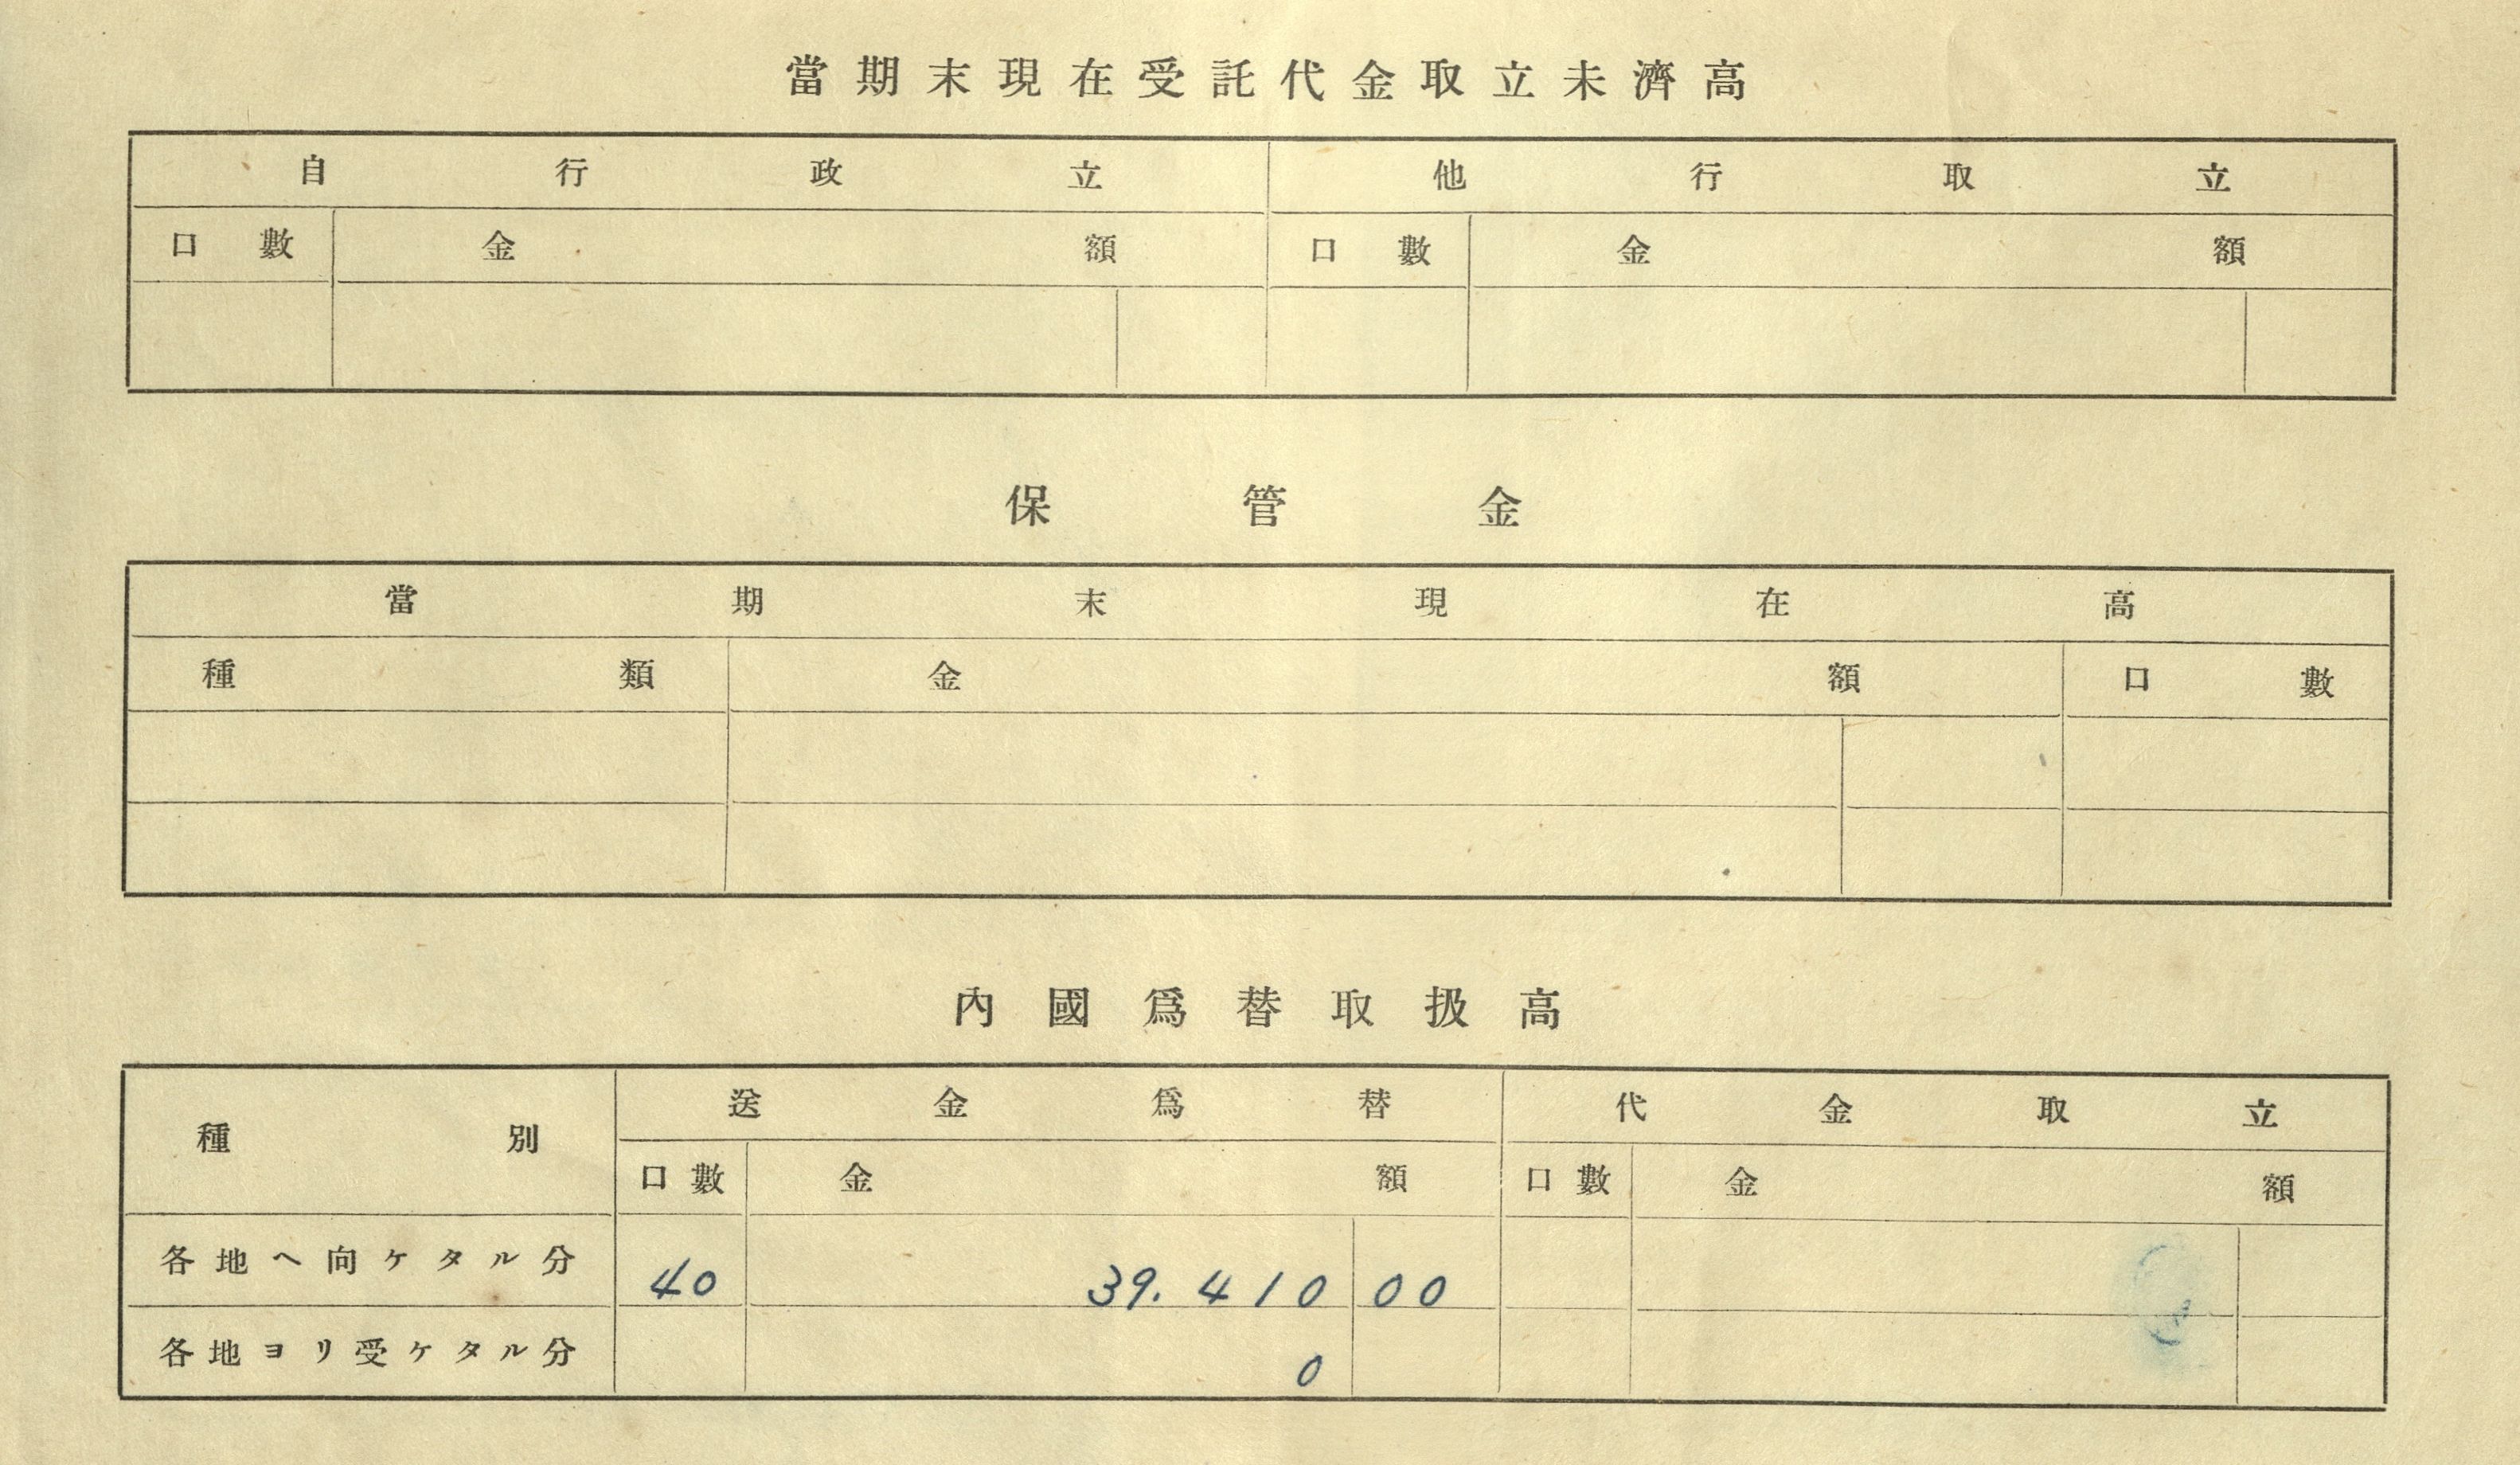 當期末現在受託代金取立未濟高
自行政立 他行取立
口數 金額 口數 金額
保管金
當期末現在高
種類 金額 口數
內國爲替取扱高
種別 送金爲替 代金取立
口數 金額 口數 金額
各地ヘ向ケタル分 40 39.410 00
各地ヨリ受ケタル分 0